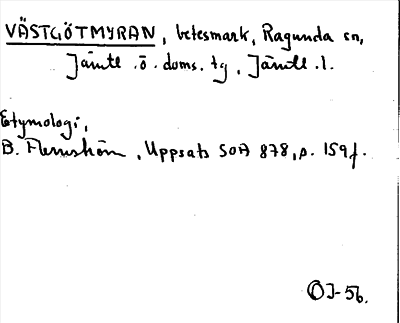 VÄSTGÖTMYRAN, betesmark, Ragunda sn,
Jämtl. ö. doms. tg, Jämtl. l.
Etymologi,
B. Flemström, Uppsats SOA 878, s. 159 f.
OJ-56.